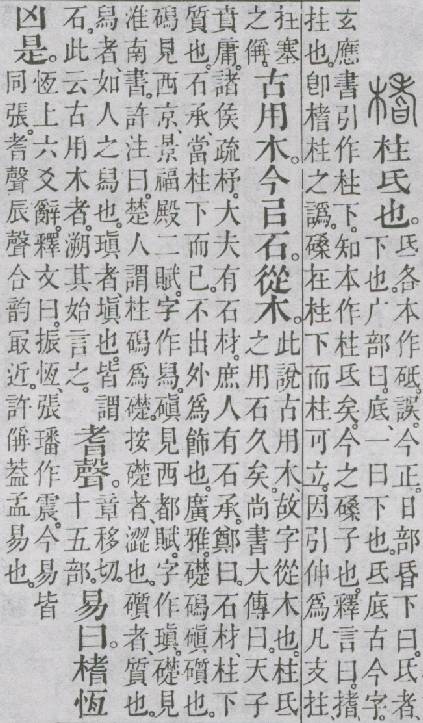 榰柱氐也。氐各本作砥。誤。今正。日部昏下曰。氐者、
下也。广部曰。底、一曰下也。氐底古今字。
玄應書引作柱下。知本作柱氐矣。今之磉子也。釋言曰。搘、
拄也。卽榰柱之譌。磉在柱下而柱可立。因引伸爲凡支拄、
拄塞
之偁。古用木。今㠯石。從木。此說古用木、故字從木也。柱氐
之用石久矣。尚書大傳曰。天子
賁庸。諸侯疏杼。大夫有石材。庶人有石承。鄭曰。石材、柱下
質也。石承當柱下而已。不出外爲飾也。廣雅。礎磶磌礩也。
磶見西京、景福殿二賦。字作舄。磌見西都賦。字作瑱。礎見
淮南書。許注曰。楚人謂柱磶爲礎。按礎者、澀也。礩者、質也。
舄者、如人之舄也。瑱者塡也。皆謂
石。此云古用木者。溯其始言之。耆聲。章移切。
十五部。易曰。榰恆
凶是。恆上六爻辭。釋文曰。振恆張璠作震。今易皆
同張。耆聲辰聲合韵冣近。許偁葢孟易也。